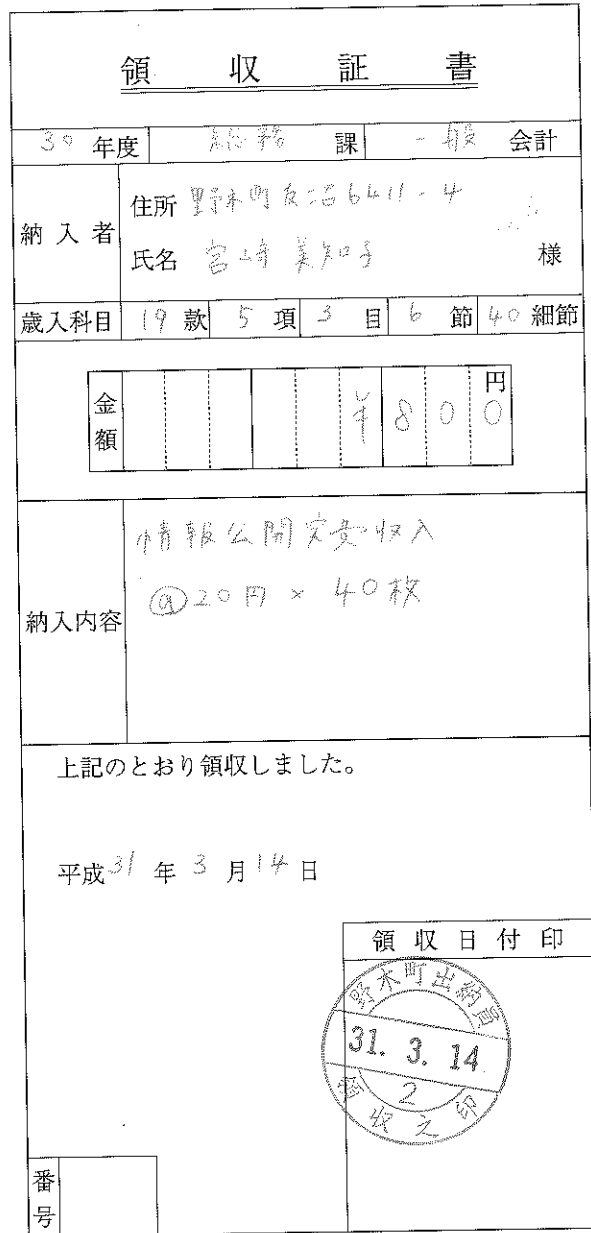 領収証書
30年度 総務課 一般会計
納入者
住所 野木町友沼6411-4
氏名 宮崎 美知子 様
歳入科目 19款 5項 3目 6節 40細節
金額 ¥800円
納入内容
情報公開実費収入
@20円×40枚
上記のとおり領収しました。
平成31年3月14日
領収日付印
野木町出納員
31.3.14
2
領収之印
番号